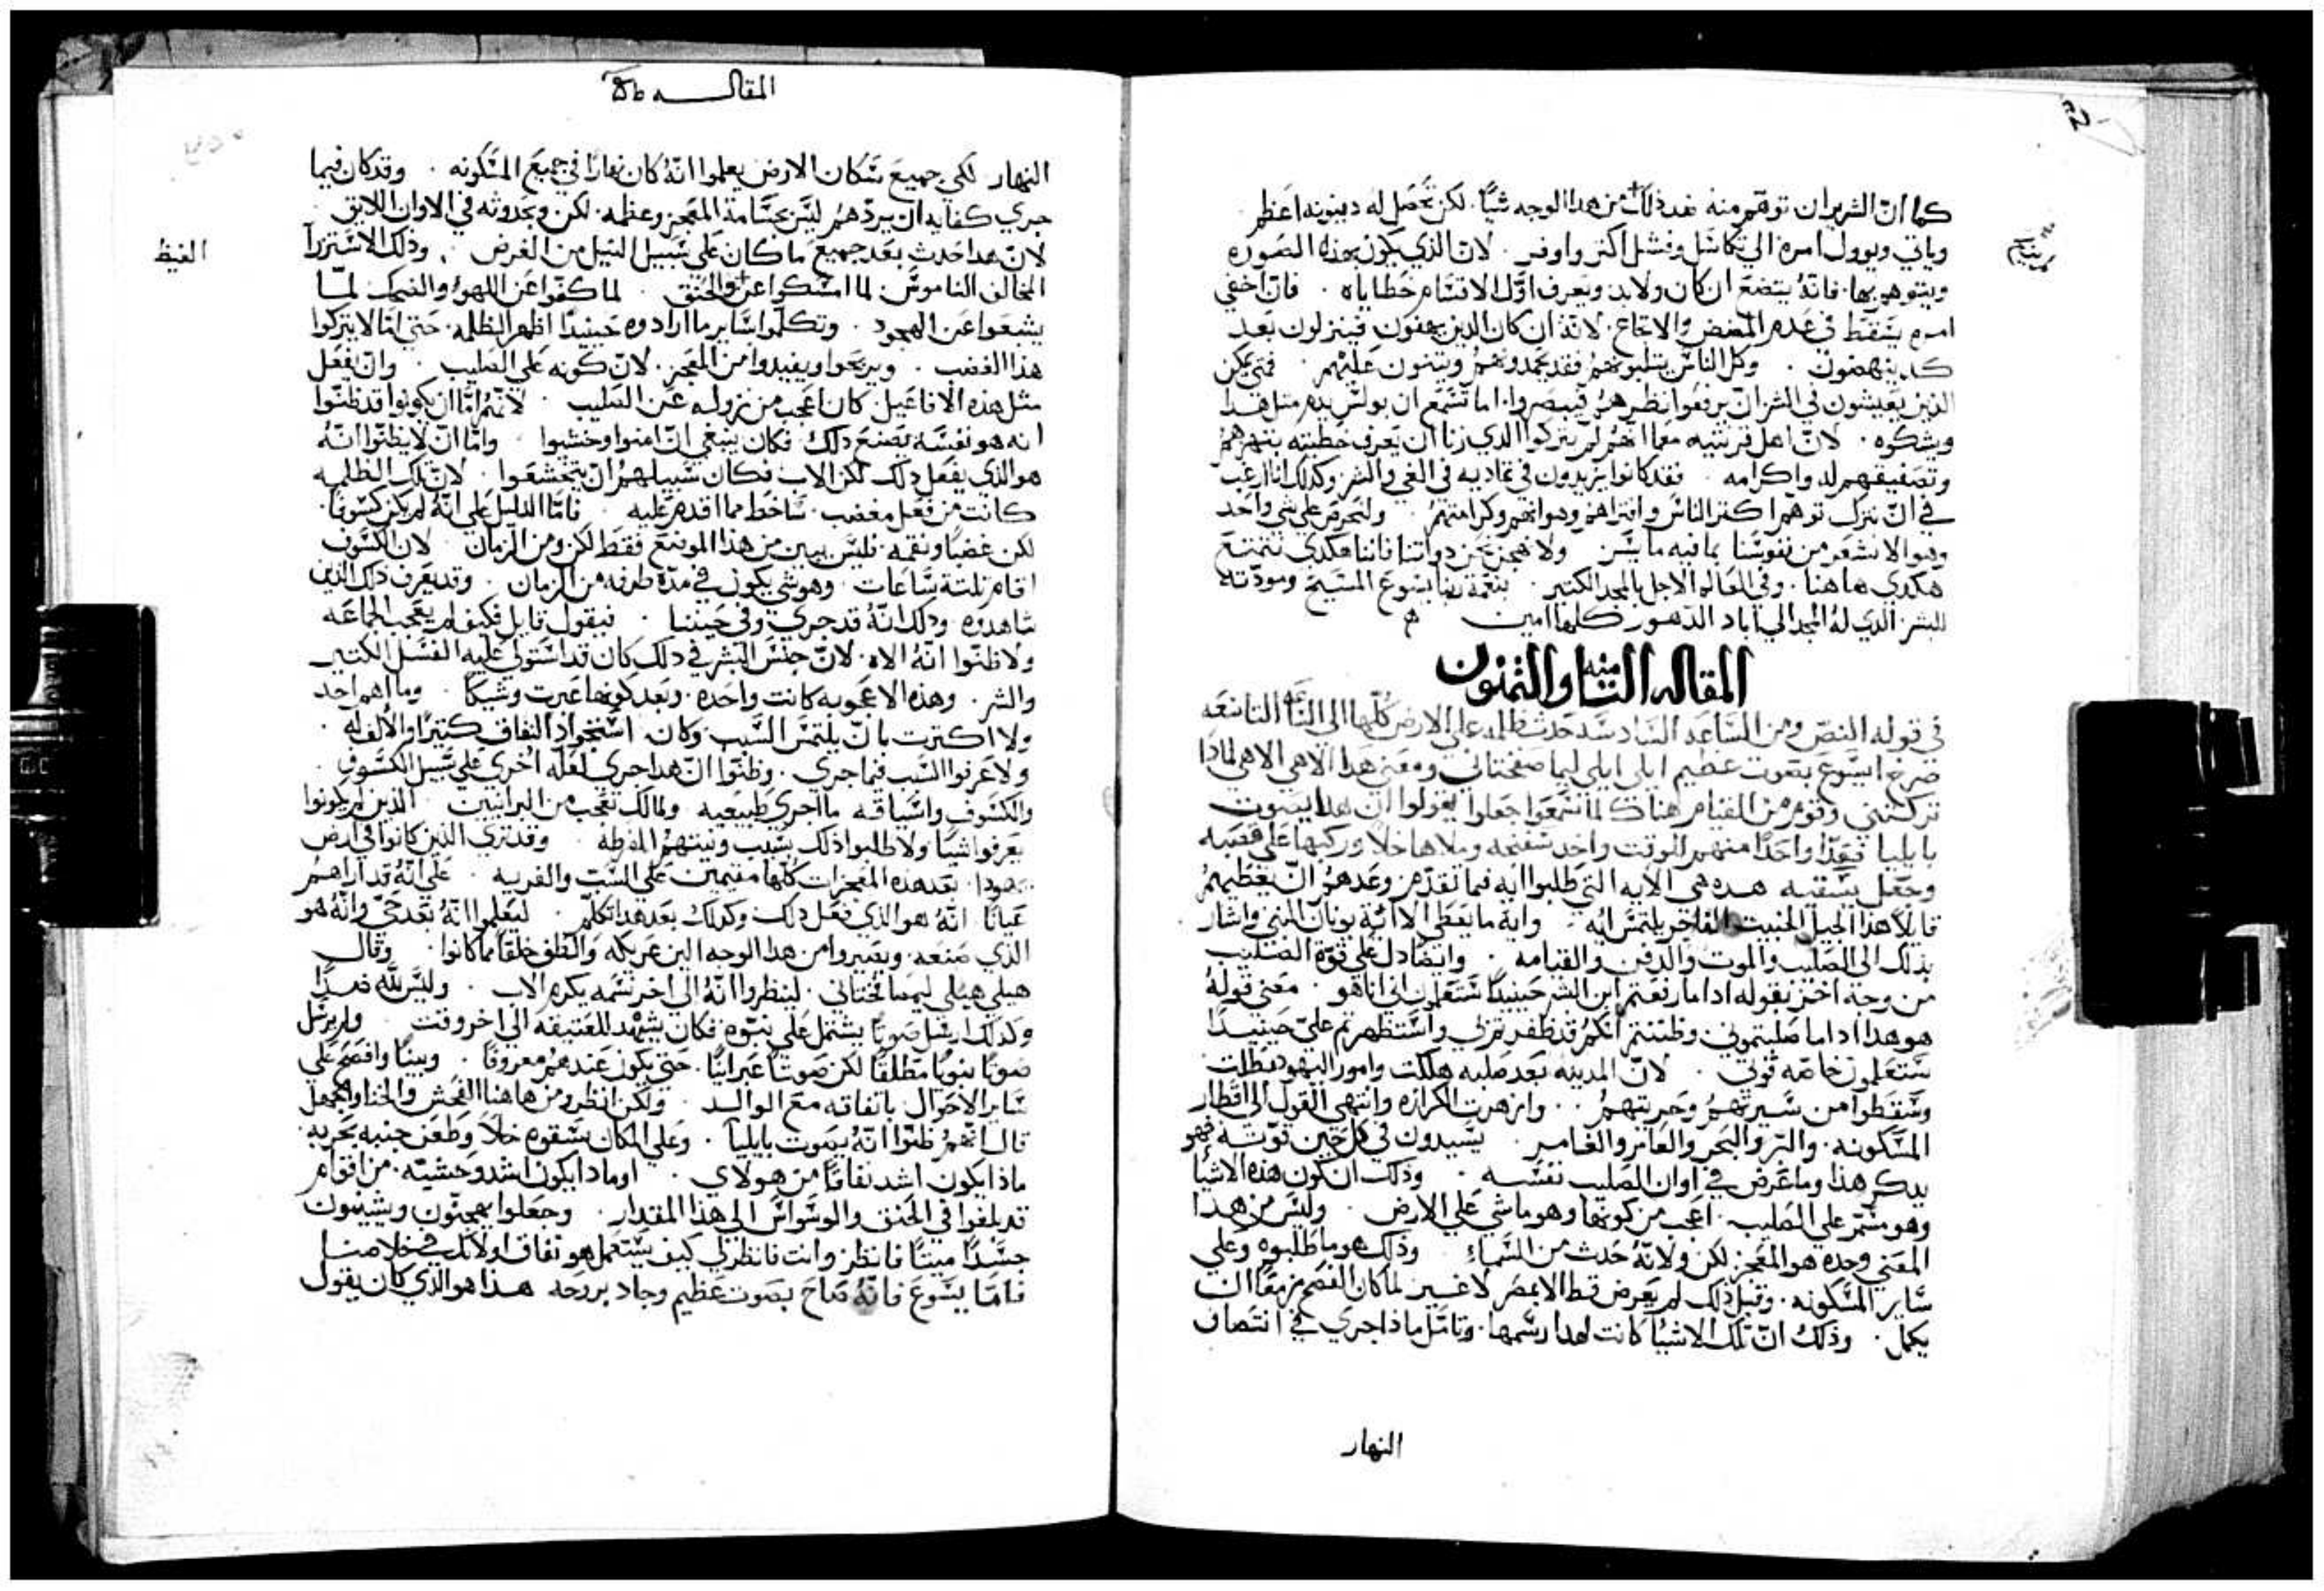 كما انّ الشرير ان توقّم منه ضد ذلك من هدا الوجه شيًا. لكن تحصل له دينونه اعظم
وياتي ويوول امره الى تكاسل وفشل اكتر واوفر. لانّ الذي يكون بهذه الصوره
امره يسقط في عدم
كد ينهضون. وكل الناس يتلبونهم فقد يحمدونهم ويتنون عليهم. فمتى يمكن
الذين يعيشون في الشر انّ يرفعوا نظرهم فيبصروا. اما تسمع ان بولس يدم متل هدا
ويشكوه. لانّ اهل قرنتيه
وتصفيقهم له واكرامه. فقد كانوا يزيدون في تماديه في الغي والشر وكدلك انا ارغب
في انّ نترك توهم اكتر الناس وافتراهم وهوانهم وكرامتهم. ولنحرص على شي واحد
وهو الا نشعر من نفوسنا بما فيه ما يشين. ولا نهجن نحن دواتنا فاننا هكدى نتمتع
هكدى هاهنا. وفي العالم الاجل بالمجد الكتير. بنعمة ربنا يسوع المسيح ومودّته
للبشر الذي له المجد الي اباد الدهور كلها امين
المقاله التامنه والتمنون
في قوله النصّ ومن الساعه السادسه حدث ظلمه على الارض كلّها الى الساعه التاسعه
صرخ ايسوع بصوت عظيم ايلي ايلي ليما صفختاني ومعنى هدا الاهي الاهي لمادا
تركتني وقوم من القيام هناك لما سمعوا جعلوا يقولوا ان هدا يصوت
بايليا فعدّا واحدًا منهم للوقت واخد سفنجه وملاها خلًا وركبها على قصبه
وجعل يسقيه هده هي الايه التي طلبوا ايه فيما تقدّم وعدهم انّ يعطيهم
قايلًا هذا الجيل الخبيت الفاجر يلتمس ايه. وايه ما يعطى الا اية يونان النبي واشار
بذلك الى الصليب والموت والدفن والقيامه. وايضًا دل على قوّة الصليب
من وجه اخر بقوله ادا ما رفعتم ابن البشر حينيدًا ستعلمون اني انا هو. معنى قوله
هو هدا ادا ما صلبتموني وظننتم انكم قد ظفرتم بي واستظهرتم عليّ حينيدًا
ستعلمون خاصّه قوتي. لانّ المدينه بعد صلبه هلكت وامور اليهود بطلت
وسقطوا من سيرتهم وحريتهم. وازهرت الكرازه وانتهى القول الى اقطار
المسكونه. والبر والبحر والعامر والغامر. يشيدون في كل حين قوّته فهو
يدكر هذا وما عرض في اوان الصليب نفسه. وذلك ان كون هذه الاشيا
وهو مسمّر على الصليب. اعجب من كونها وهو ماشي على الارض. وليس من هدا
المعنى وحده هو المعجز لكن ولانه حدث من السماء. وذلك هو ما طلبوه وعلى
ساير المسكونه. وقبل ذلك لم يعرض قط الا بمصر لا غير لما كان الفصح مزمعًا ان
يكمل. وذلك انّ تلك الاشيا كانت لهدا رسمها. وتامّل ماذا جرى في انتصاف
النهار
المقالـــه
النهار لكي جميع سكان الارض يعلموا انّه كان نهارًا في جميع المسكونه. وقد كان فيما
جرى كفايه ان يردّهم ليس بجسامة المعجز وعظمه. لكن وبحدوثه في الاوان اللايق
الغيظ
لانّ هدا حدث بعد جميع ما كان على سبيل
المخالف الناموس. لما امسكوا عن الحنق. لما كفّوا عن اللهو والضحك لمّا
يشبعوا عن الهجو. وتكلّموا ساير ما ارادوه حينيدًا اظهر الظلمه. حتى
هذا الغضب. ويربحوا ويفيدوا من المعجز. لانّ كونه على الصليب. وانّ يفعل
متل هذه الافاعيل. كان اعجب من نزوله عن الصليب. لانّهم امّا ان يكونوا قد ظنّوا
انه هو نفسه يصنع دلك فكان ينبغي انّ امنوا وخشيوا. وامّا انّ لا يظنّوا انّه
هو الذي يفعل دلك لكن الاب فكان سبيلهم انّ يتخشعوا. لانّ تلك الظلمه
كانت من فعل مغضب. ساخط مما اقدم عليه. فامّا الدليل على انّه لم يكن كسوفًا.
لكن غضبًا ونقمه. فليس يبين من هذا الموضع فقط لكن ومن الزمان. لان الكسوف
اقام تلتة ساعات. وهو شي يكون في مدّة طرفه من الزمان. وقد يعرف ذلك الذين
شاهدوه ودلك انّه قد جرى وفي حيننا. فيقول قايل فكيف لم يتعجب الجماعه
ولا ظنّوا انّه الاه. لانّ جنس البشر في دلك كان قد استولى عليه الفشل الكتير
والشر. وهذه الاعجوبه كانت واحده. وبعد كونها عبرت وشيكًا. وما اهم احد
ولا اكترت بانّ يلتمس السبب وكان استحواد النفاق كتيرًا والالف له
ولا عرفوا السبب فيما جرى. وظنّوا انّ هدا جرى لعلّه اخرى على سبيل الكسوف
يعرفوا شيًا ولا طلبوا ذلك بسبب ونيتهم المفرطه. وقد نرى الذين كانوا في ارض
يهودا. بعد هذه المعجزات كلّها مقيمين على السّب والفريه. على انّه قد اراهم
عيانًا انّه هو الذي فعل دلك وكدلك بعد هدا تكلّم. ليعلموا انّه بعد حيّ وانّه هو
الذي صنعه. ويصيروا من هدا الوجه الين عريكه والطف خلقًا مما كانوا. وقال
هيلي هيلي ليما صفختاني. لينظروا انّه الى اخر نسمه يكرم الاب. وليس للّه ضدًا
وكذلك ارسل صوتًا يشتمل على نبّوه فكان يشهد للعتيقه الى اخر وقت. ولم يرسل
صوتًا نبويًا مطلقًا لكن صوتًا عبرانيًا. حتى يكون عندهم معروفًا. وبينًا وافصح على
ساير الاحوال باتفاقه مع الوالد. ولكن انظر ومن هاهنا الفحش والخنا والجهل
قال انّهم ظنّوا انّه يصوت بايليا. وعلى المكان يسقوه خلًا وطعن جنبه بحربه.
ماذا يكون اشد نفاقًا من هولاي. او مادا يكون اشد وحشيّه. من اقوام
قد بلغوا في الحنق والوسواس الى هذا المقدار. وجعلوا يهجنّون ويشينون
جسدًا ميتًا فانظر وانت فانظر لي كيف يستعمل هو نفاق اولايك في خلاصنا
فامّا يسوع فانّه صاح بصوت عظيم وجاد بروحه هدا هو الذي كان يقول